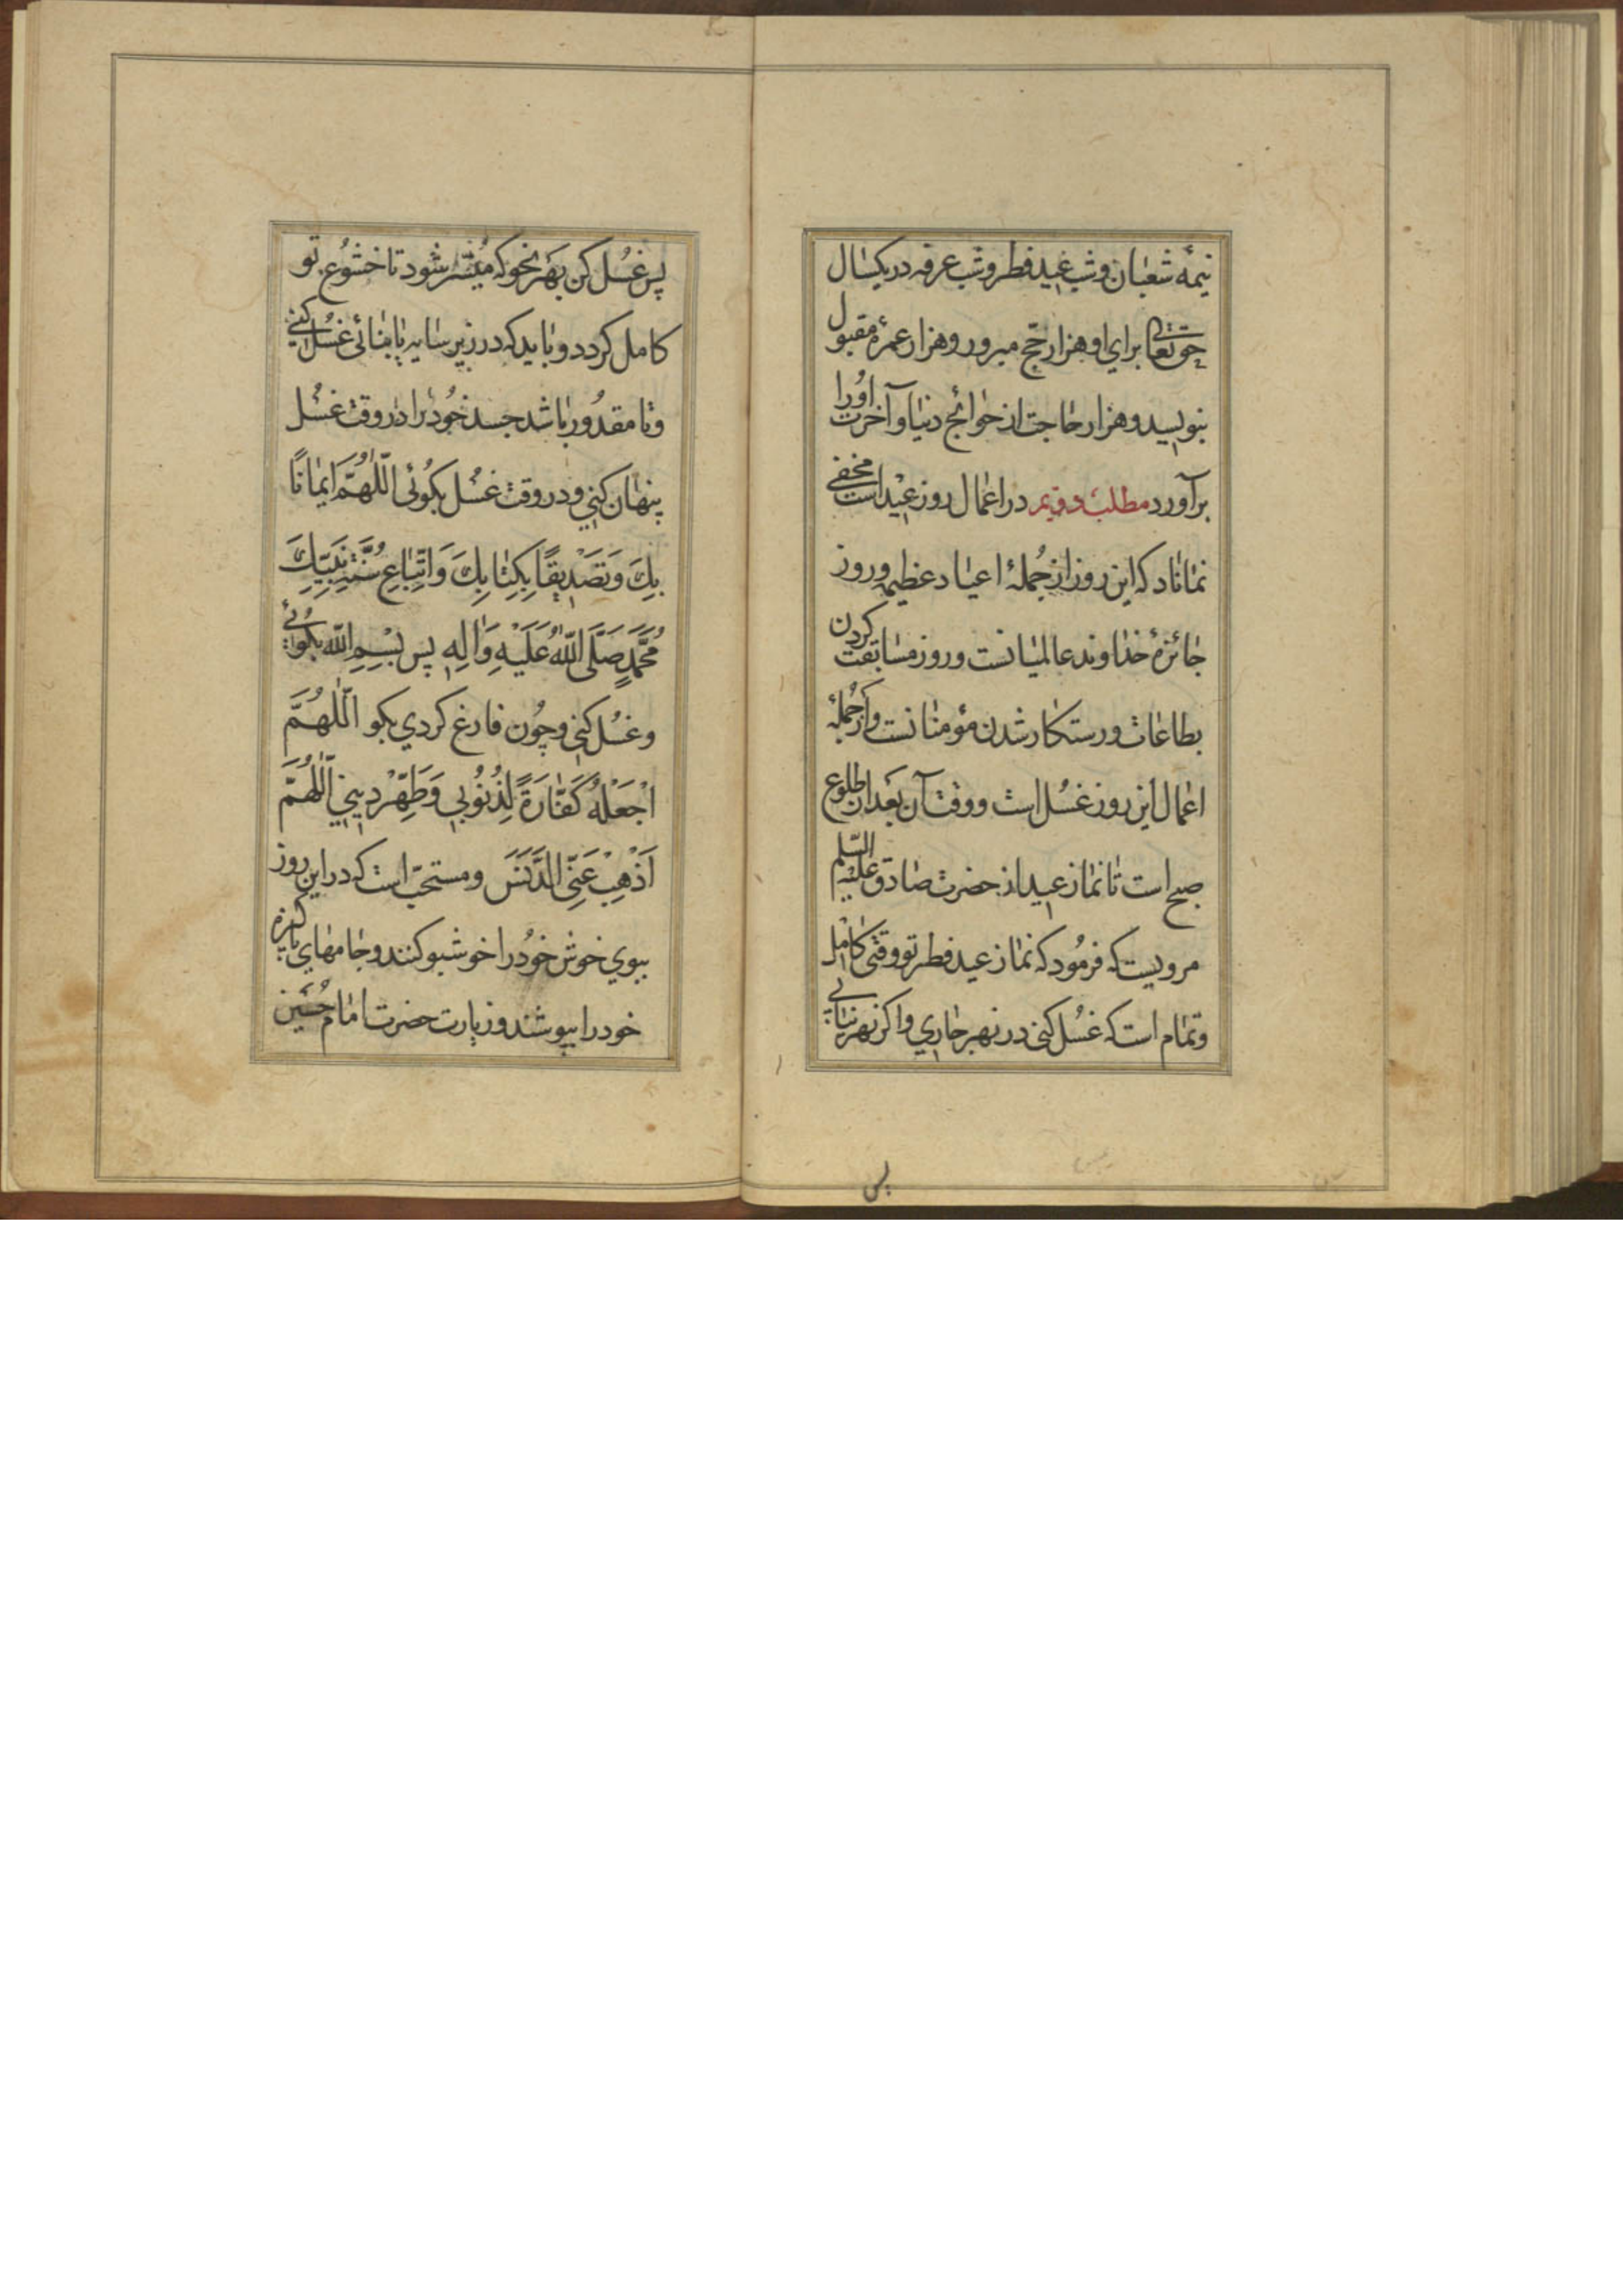 نیمهٔ شعبان و شب عید فطر و شب عرفه در یکسال
حق تعالی برای او هزار حج مبرور و هزار عمرهٔ مقبول
بنویسد و هزار حاجت از حوائج دنیا و آخرت او را
برآورد مطلب دویم در اعمال روز عید است مخفی
نماناد که این روز از جُملهٔ اعیاد عظیمه و روز
جائزهٔ خداوند عالمیانست و روز مسابقت کردن
بطاعات و رستکار شدن مؤمنانست و از جُملهٔ
اعمال این روز غسُل است و وقت آن بَعد از طلوع
صبح است تا نماز عید از حضرت صادق علیه السّلم
مرویست که فرمُود که نماز عید فطر تو وقتی کامل
و تمام است که غسُل کنی در نهر جاری و اکر نهر نیابی
پس
پس غسُل کن بهَر نحو که میُسّر شود تا خشوُع تو
کامل کردد و باید که در زیر سایه یا بنائی غسُل کنی
و تا مقدُور باشد جسد خوُد را در وقت غسُل
پنهان کنی و در وقت غسُل بکوُئی اَللّٰهُمَّ اِیمٰانًا
بِكَ وَ تَصْدِیقًا بِكِتٰابِكَ وَ اتِّبٰاعِ سُنَّةِ نَبِیِّكَ
مُحَمَّدٍ صَلَّی اللّٰهُ عَلَیْهِ وَ اٰلِهِ پس بِسْمِ اللّٰه بکوئی
و غسُل کنی و چوُن فارغ کردی بکو اَللّٰهُمَّ
اجْعَلْهُ كَفّٰارَةً لِذُنُوبِی وَ طَهِّرْ دِینِی اَللّٰهُمَّ
اَذْهِبْ عَنِّی الدَّنَسَ و مستحبّ است که در این روز
ببوی خوش خوُد را خوشبو کنند و جامهای پاکیزه
خود را بپوشند و زیارت حضرت امام حُسَین